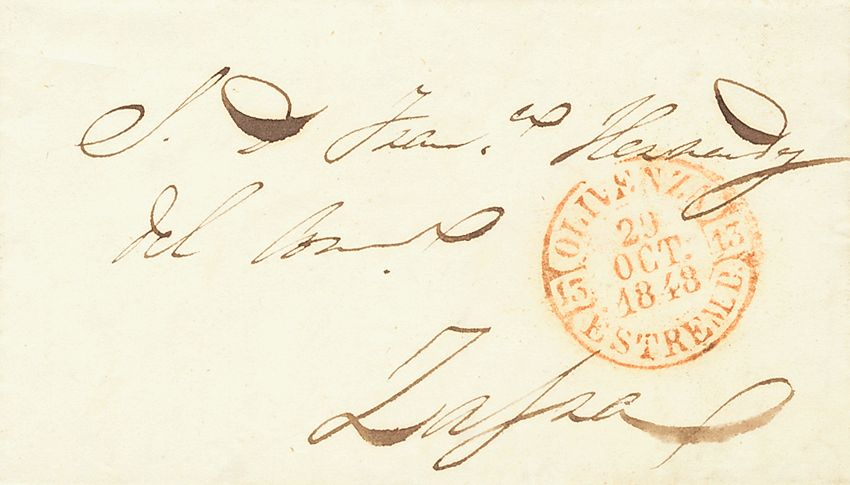 S. D. Fran.co Hernandez
del
Zafra
OLIVENZA 13
29
OCT.
1848
13 ESTREM.D.